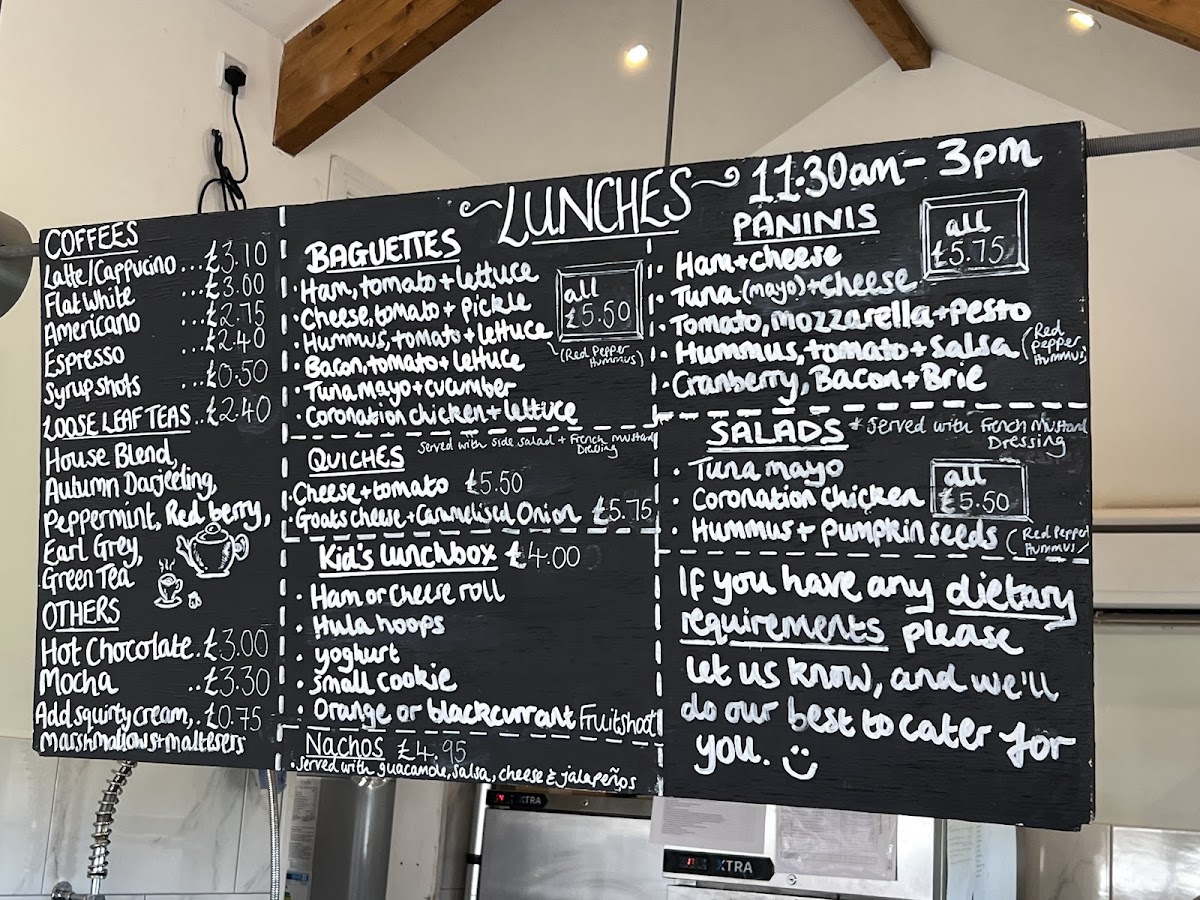 LUNCHES 11.30am - 3pm
COFFEES
Latte/Cappucino ... £3.10
Flat White ... £3.00
Americano ... £2.75
Espresso ... £2.40
Syrup shots ... £0.50
LOOSE LEAF TEAS .. £2.40
House Blend,
Autumn Darjeeling,
Peppermint, Red berry,
Earl Grey,
Green Tea
OTHERS
Hot Chocolate . £3.00
Mocha .. £3.30
Add squirty cream, . £0.75
marshmallows + maltesers
BAGUETTES
· Ham, tomato + lettuce
· Cheese, tomato + pickle
· Hummus, tomato + lettuce
(Red Pepper
Hummus)
· Bacon, tomato + lettuce
· Tuna mayo + cucumber
· Coronation chicken + lettuce
all
£5.50
QUICHES
Served with side salad + French mustard
Dressing
· Cheese + tomato £5.50
· Goats cheese + Caramelised Onion £5.75
Kid's lunchbox £4.00
· Ham or cheese roll
· Hula hoops
· yoghurt
· small cookie
· Orange or blackcurrant Fruitshoot
Nachos £4.95
· served with guacamole, salsa, cheese & jalapeños
PANINIS
all
£5.75
· Ham + cheese
· Tuna (mayo) + cheese
· Tomato, mozzarella + Pesto
· Hummus, tomato + salsa
(Red
pepper
Hummus)
· Cranberry, Bacon + Brie
SALADS * Served with French Mustard
Dressing
· Tuna mayo
· Coronation chicken
· Hummus + pumpkin seeds
(Red Pepper
Hummus)
all
£5.50
If you have any dietary
requirements please
let us know, and we'll
do our best to cater for
you.
XTRA
XTRA